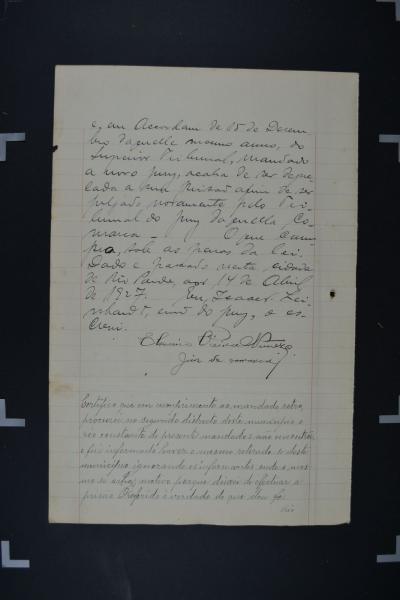 e, em Accordam de 15 de Dezem
bro daquelle mesmo anno, do
Superior Tribunal, mandado
a novo jury, acaba de ser decre-
tada a sua prisão afim de ser
julgado novamente pelo Tri-
bunal do jury daquella Co-
marca — O que cum
pra, sob as penas da lei.
Dado e passado nesta cidade
de Rio Pardo, aos 14 de Abril
de 1927. Eu, Isaac
escr. do jury, o es-
crevi.
Nunes
Juiz de comarca
Certifico que em cumprimento ao mandado retro,
procurei no segundo districto deste municipio o
réo constante do presente mandado e não encontrei
e fui informado haver o mesmo retirado-se deste
municipio, ignorando os informantes onde o mes-
mo se acha, motivo porque deixei de effectuar a
prisão. O referido é verdade do que dou fé.
Rio